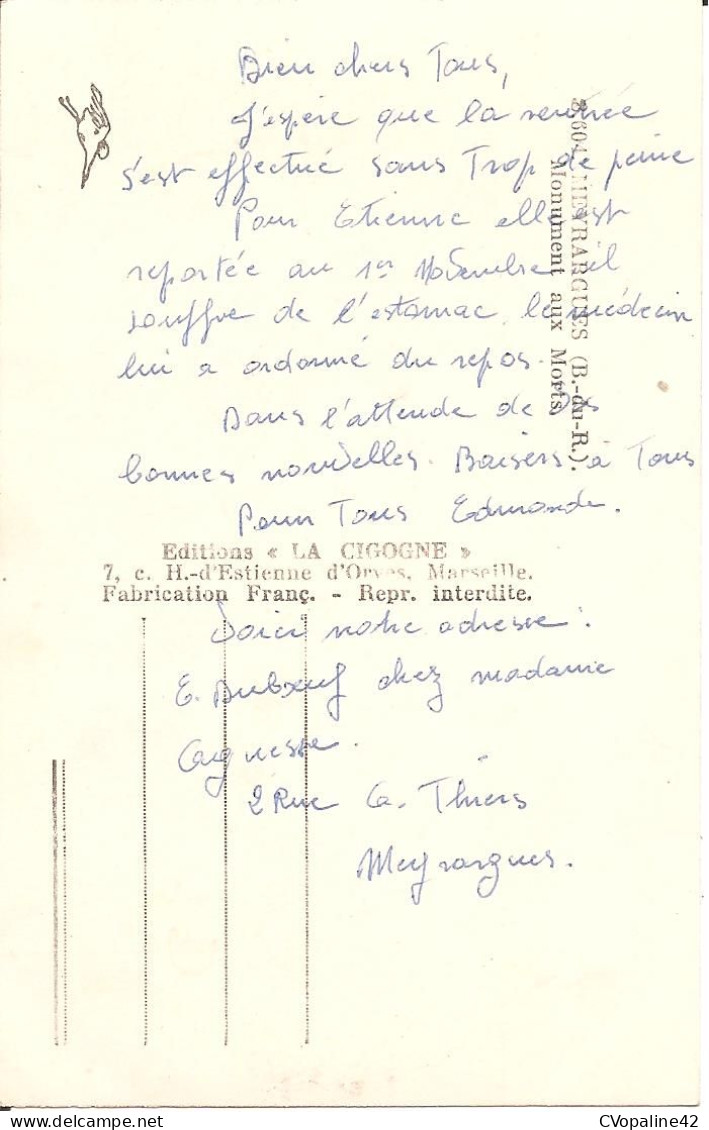 Bien chers Tous,
J'espère que la rentrée
s'est effectué sans Trop de peine
Pour Etienne elle est
reportée au 1er Novembre il
souffre de l'estomac, le médecin
lui a ordonné du repos.
Dans l'attende de Vos
bonnes nouvelles. Baisers à Tous
Pour Tous Edmonde.
MEYRARGUES (B.-du-R.).
Monument aux Morts
Editions « LA CIGOGNE »
7, c. H.-d'Estienne d'Orves. Marseille.
Fabrication Franç. - Repr. interdite.
Voici notre adresse :
E. Duboeuf chez madame
2 Rue A. Thiers
Meyrargues.
CVopaline42